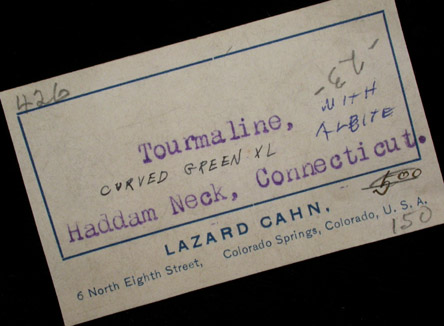 426
-73-
WITH
ALBITE
Tourmaline,
CURVED GREEN XL
Haddam Neck, Connecticut.
LAZARD CAHN,
6 North Eighth Street, Colorado Springs, Colorado, U. S. A.
150